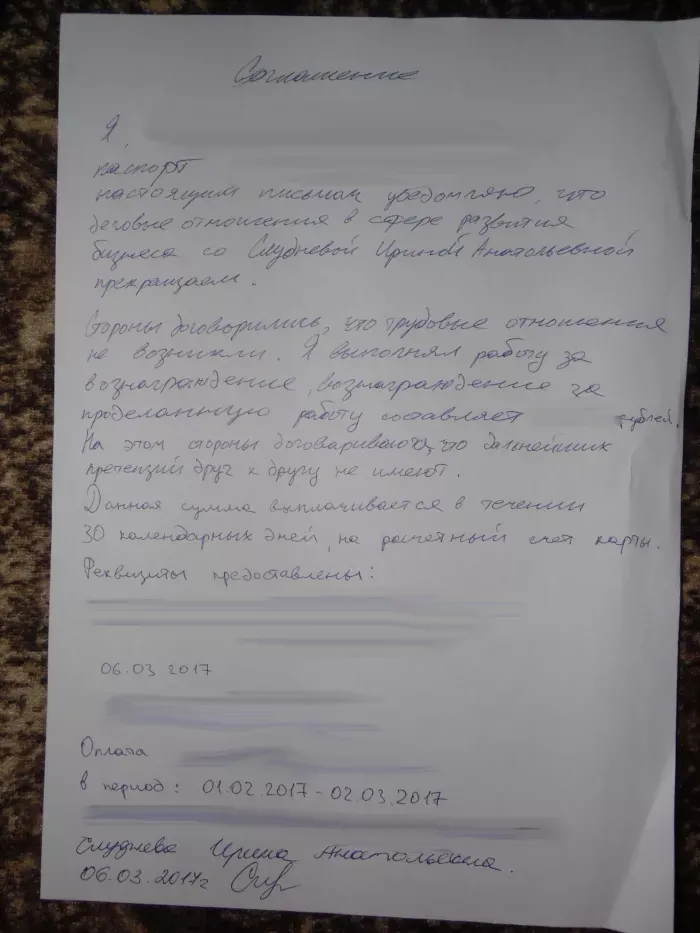 Соглашение
Я
паспорт
настоящим письмом уведомляю, что
деловые отношения в сфере развития
бизнеса со Слудневой Ириной Анатольевной
прекращаем.
Стороны договорились, что трудовые отношения
не возникли. Я выполнял работу за
вознаграждение, вознаграждение за
проделанную работу составляет рублей.
На этом стороны договариваются, что дальнейших
претензий друг к другу не имеют.
Данная сумма выплачивается в течении
30 календарных дней, на расчетный счет карты.
Реквизиты предоставлены:
06.03 2017
Оплата
в период: 01.02.2017 - 02.03.2017
Слуднева Ирина Анатольевна.
06.03.2017г